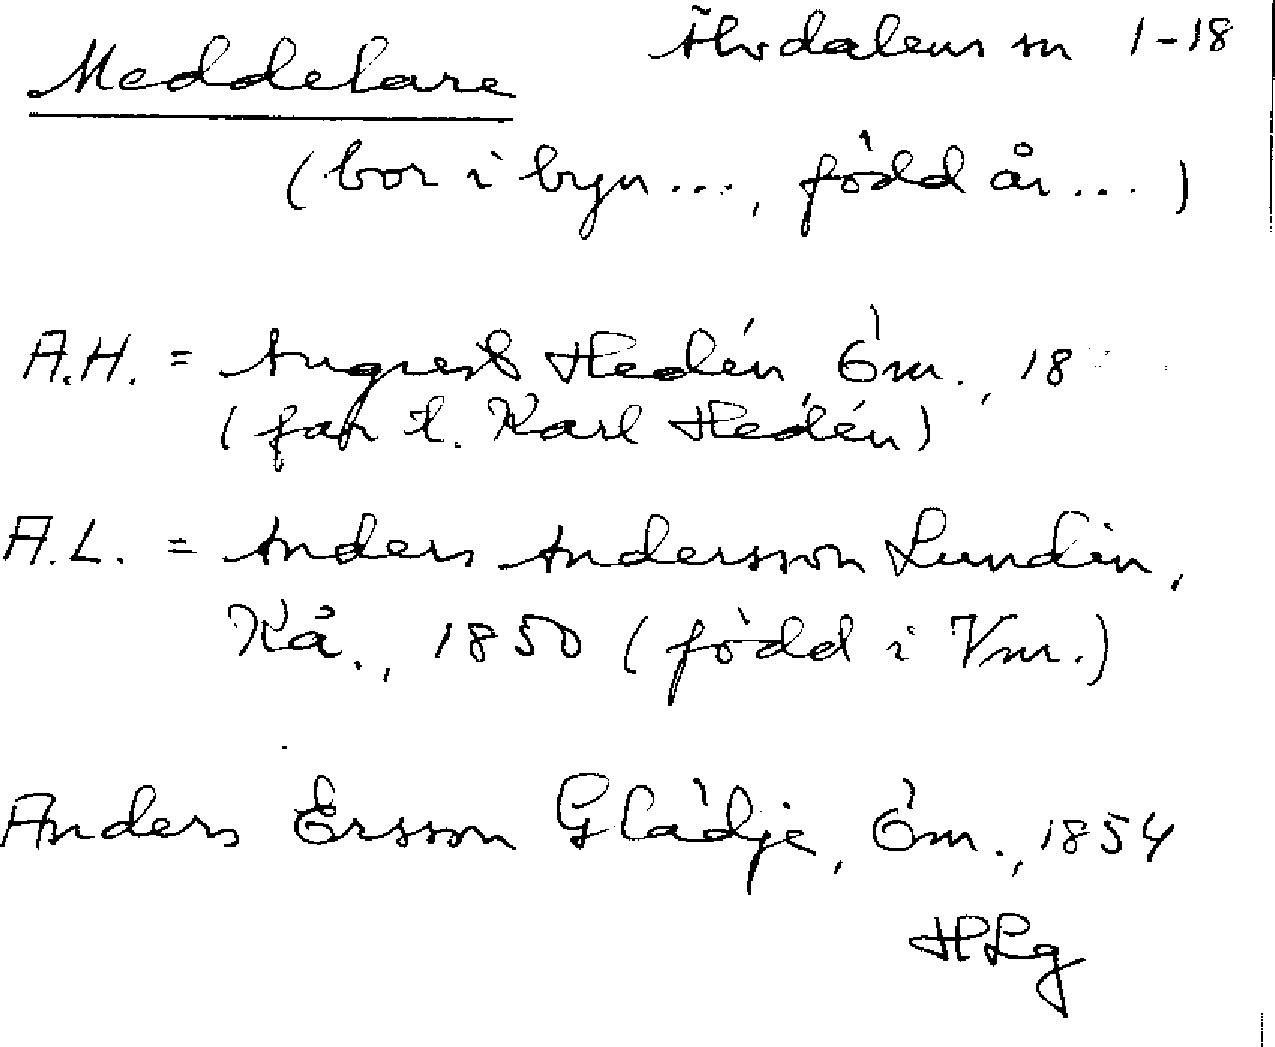 Meddelare Älvdalens sn 1-18
(bor i byn ..., född år ...)
A.H. = August Hedén Öm., 18
(far t. Karl Hedén)
A.L. = Anders Andersson Lundin,
Kå., 1850 (född i Vm.)
Anders Ersson Glädje, Öm., 1854
HLg